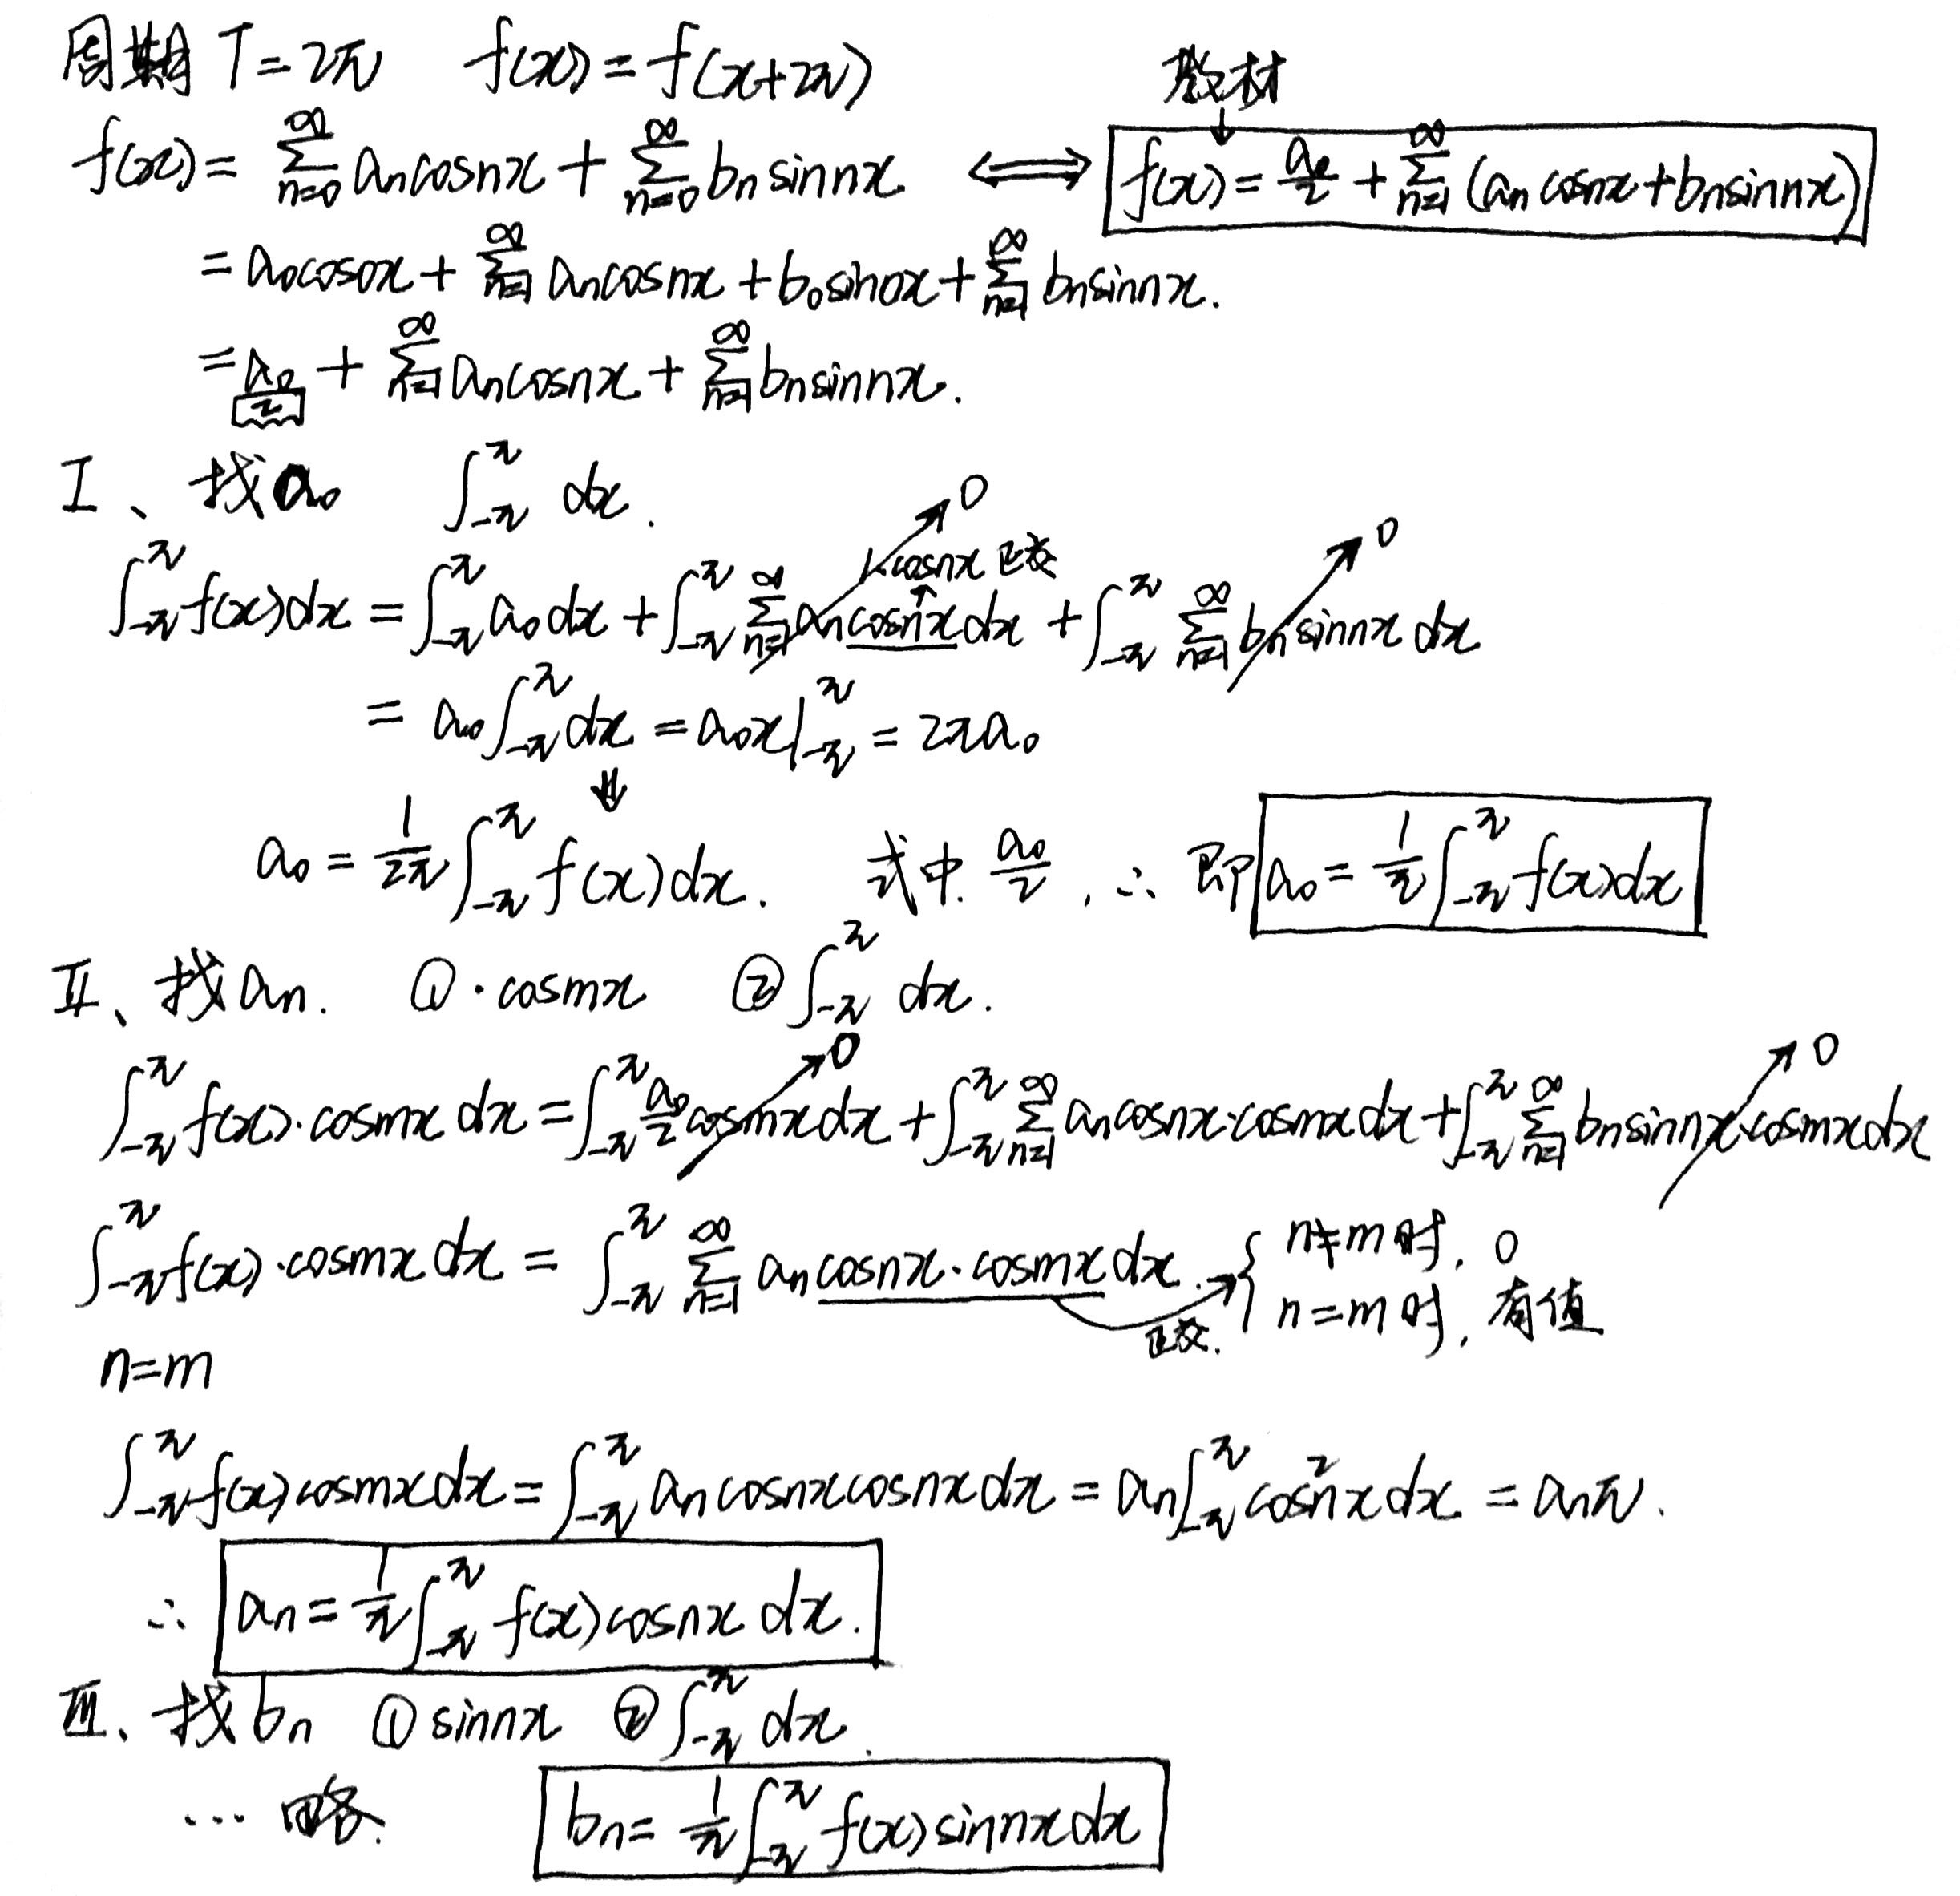 周期 T=2π f(x)=f(x+2π)
教材
↓
f(x)=∑_{n=0}^{∞} aₙcosnx+∑_{n=0}^{∞} bₙsinnx. ⟺ f(x)=a₀/2+∑_{n=1}^{∞}(aₙcosnx+bₙsinnx)
=a₀cos0x+∑_{n=1}^{∞} aₙcosnx+b₀sin0x+∑_{n=1}^{∞} bₙsinnx.
=a₀/2+∑_{n=1}^{∞} aₙcosnx+∑_{n=1}^{∞} bₙsinnx.
Ⅰ、找a₀ ∫_{-π}^{π} dx.
0
1·cosnx 正交 0
∫_{-π}^{π} f(x)dx=∫_{-π}^{π} a₀dx+∫_{-π}^{π} ∑_{n=1}^{∞} aₙcosnxdx+∫_{-π}^{π} ∑_{n=1}^{∞} bₙsinnxdx
=a₀∫_{-π}^{π} dx=a₀x|_{-π}^{π}=2πa₀
⇓
a₀=1/2π ∫_{-π}^{π} f(x)dx. 式中 a₀/2, ∴ 即 a₀=1/π ∫_{-π}^{π} f(x)dx
Ⅱ、找aₙ. ①·cosmx ②∫_{-π}^{π} dx.
0 0
∫_{-π}^{π} f(x)·cosmxdx=∫_{-π}^{π} a₀/2 cosmxdx+∫_{-π}^{π} ∑_{n=1}^{∞} aₙcosnx·cosmxdx+∫_{-π}^{π} ∑_{n=1}^{∞} bₙsinnx·cosmxdx
∫_{-π}^{π} f(x)·cosmxdx=∫_{-π}^{π} ∑_{n=1}^{∞} aₙcosnx·cosmxdx. { n≠m时, 0
正交. n=m时, 有值
n=m
∫_{-π}^{π} f(x)cosmxdx=∫_{-π}^{π} aₙcosnxcosnxdx=aₙ∫_{-π}^{π} cos²nxdx=aₙπ.
∴ aₙ=1/π ∫_{-π}^{π} f(x)cosnxdx.
Ⅲ、找bₙ ①sinnx ②∫_{-π}^{π} dx.
…略. bₙ=1/π ∫_{-π}^{π} f(x)sinnxdx